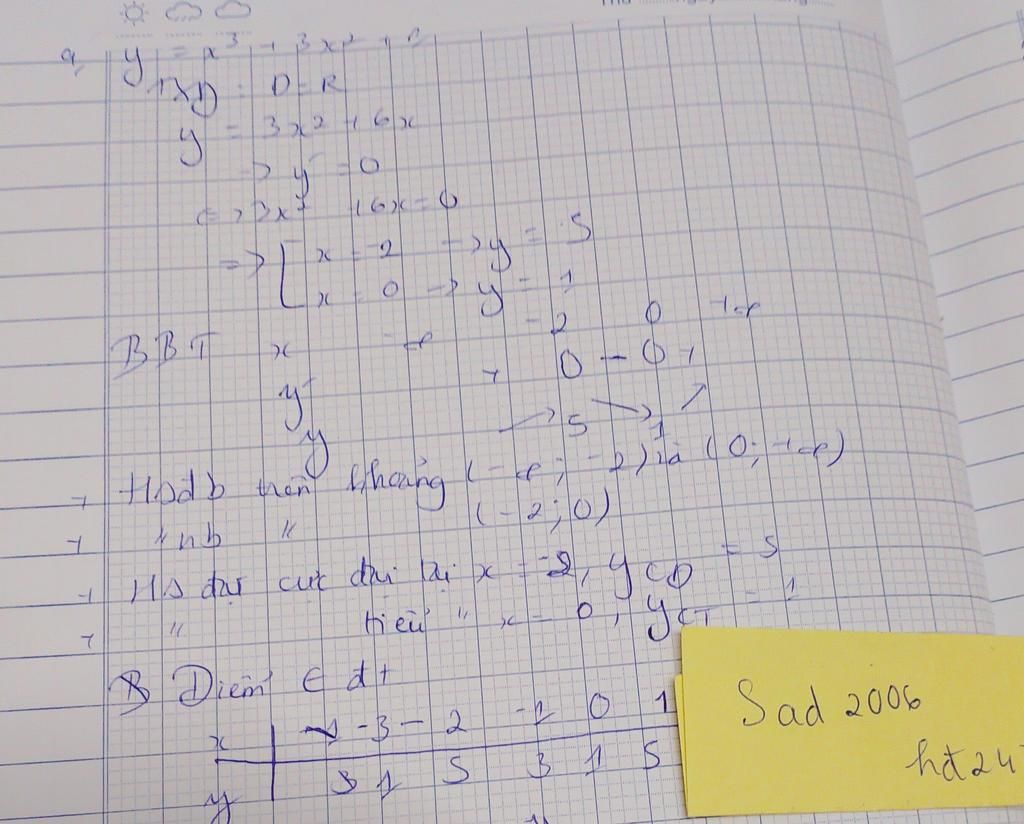 a, y = x³ + 3x² + 1
TXD : D = R
y' = 3x² + 6x
→ y' = 0
<=> 3x² + 6x = 0
=> [ x = -2 → y = 5
x = 0 → y = 1
BBT x -∞ -2 0 +∞
y' + 0 - 0 +
y ↗ 5 ↘ 1 ↗
+ HSđb trên khoảng (-∞; -2) và (0; +∞)
+ " nb " (-2; 0)
+ HS đạt cực đại tại x = -2, yCĐ = 5
+ " tiểu " x = 0, yCT = 1
Điểm ∈ đt
x -3 -2 -1 0 1
y 3 1 5 3 1 5
Sad 2006
hđ247